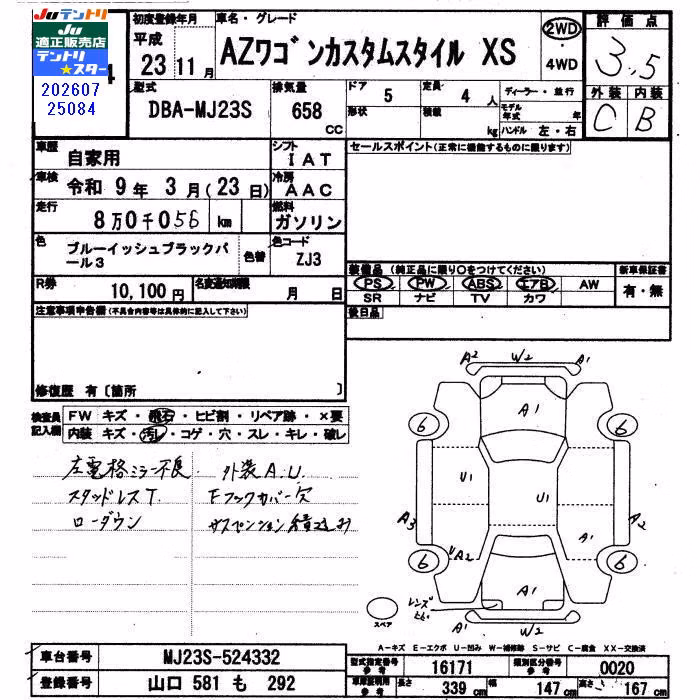 Juテントリ
Ju
適正販売店
テントリ
★スター
202607
25084
4
初度登録年月
平成
23 11月
車名・グレード
AZワゴンカスタムスタイル XS
2WD
・
4WD
評価点
3.5
外装 内装
C B
型式
DBA-MJ23S
排気量
658 CC
ドア 5
定員 4人
形状
積載 kg
ディーラー・並行
モデル年式 年
ハンドル 左・右
車歴 自家用
シフト IAT
車検 令和 9年 3月(23日)
冷房 AAC
走行 8万0千056 km
燃料 ガソリン
色 ブルーイッシュブラックパール3
色替
色コード ZJ3
R券 10,100円
名変通知期限 月 日
セールスポイント(正常に機能するものに限ります)
装備品(純正品に限り○をつけてください)
新車保証書
PS PW ABS エアB AW
SR ナビ TV カワ
有・無
後日品
注意事項申告欄(不具合内容等は具体的に記入して下さい)
修復歴 有〔箇所 〕
検査員記入欄
FW キズ・飛石・ヒビ割・リペア跡・×要
内装 キズ・汚れ・コゲ・穴・スレ・キレ・破レ
左電格ミラー不良 外装A.U
スタッドレスT. Fフックカバー欠
ローダウン サスペンション錆込み
A2 W2 A1
A1
6 6
U1 U1
A3 A2
UA2 A1
6 6
A1
レンズ
A1 W2 A1
スペア
A-キズ E-エクボ U-凹み W-補修跡 S-サビ C-腐食 XX-交換済
車台番号 MJ23S-524332
登録番号 山口 581 も 292
型式指定番号 参考 16171
類別区分番号 参考 0020
車庫証明用 参考 長さ 339cm 幅 147cm 高さ 167cm